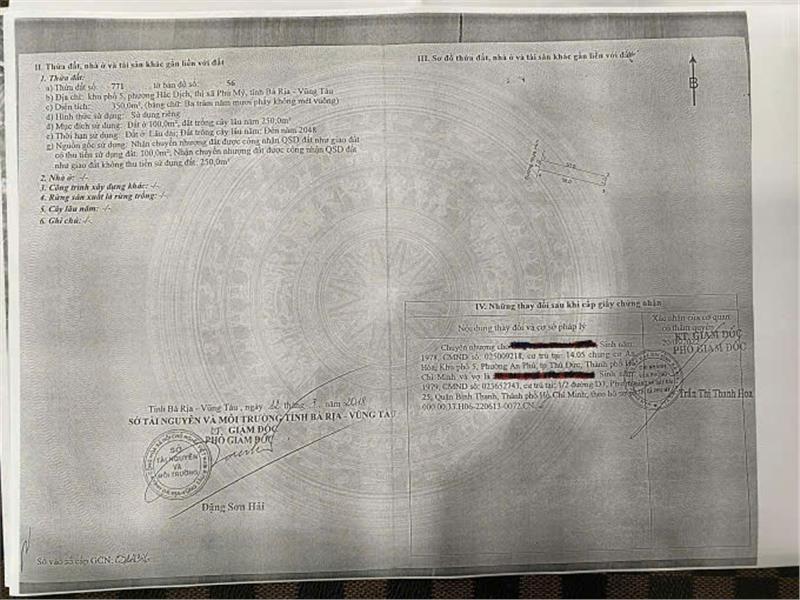 II. Thửa đất, nhà ở và tài sản khác gắn liền với đất
1. Thửa đất:
a) Thửa đất số: 771 tờ bản đồ số: 56
b) Địa chỉ: khu phố 5, phường Hắc Dịch, thị xã Phú Mỹ, tỉnh Bà Rịa - Vũng Tàu
c) Diện tích: 350,0m², (bằng chữ: Ba trăm năm mươi phẩy không mét vuông)
d) Hình thức sử dụng: Sử dụng riêng
đ) Mục đích sử dụng: Đất ở 100,0m²; đất trồng cây lâu năm 250,0m²
e) Thời hạn sử dụng: Đất ở: Lâu dài; Đất trồng cây lâu năm: Đến năm 2048
g) Nguồn gốc sử dụng: Nhận chuyển nhượng đất được công nhận QSD đất như giao đất
có thu tiền sử dụng đất: 100,0m²; Nhận chuyển nhượng đất được công nhận QSD đất
như giao đất không thu tiền sử dụng đất: 250,0m²
2. Nhà ở: -/-
3. Công trình xây dựng khác: -/-
4. Rừng sản xuất là rừng trồng: -/-
5. Cây lâu năm: -/-
6. Ghi chú: -/-
Tỉnh Bà Rịa - Vũng Tàu, ngày 22 tháng 3 năm 2018
SỞ TÀI NGUYÊN VÀ MÔI TRƯỜNG TỈNH BÀ RỊA - VŨNG TÀU
KT. GIÁM ĐỐC
PHÓ GIÁM ĐỐC
SỞ
TÀI NGUYÊN
VÀ
MÔI TRƯỜNG
Đặng Sơn Hải
Số vào sổ cấp GCN:
III. Sơ đồ thửa đất, nhà ở và tài sản khác gắn liền với đất
B
IV. Những thay đổi sau khi cấp giấy chứng nhận
Nội dung thay đổi và cơ sở pháp lý
Chuyển nhượng cho Sinh năm:
1978, CMND số: 025009218, cư trú tại: 14.05 chung cư An
Hòa, Khu phố 5, Phường An Phú, tp Thủ Đức, Thành phố Hồ
Chí Minh và vợ là Sinh năm:
1979, CMND số: 023652743, cư trú tại: 1/2 đường D3, Phường
25, Quận Bình Thạnh, Thành phố Hồ Chí Minh, theo hồ sơ số
000.00.37.H06-220613-0072.CN
Xác nhận của cơ quan
có thẩm quyền
KT. GIÁM ĐỐC
PHÓ GIÁM ĐỐC
Trần Thị Thanh Hoa